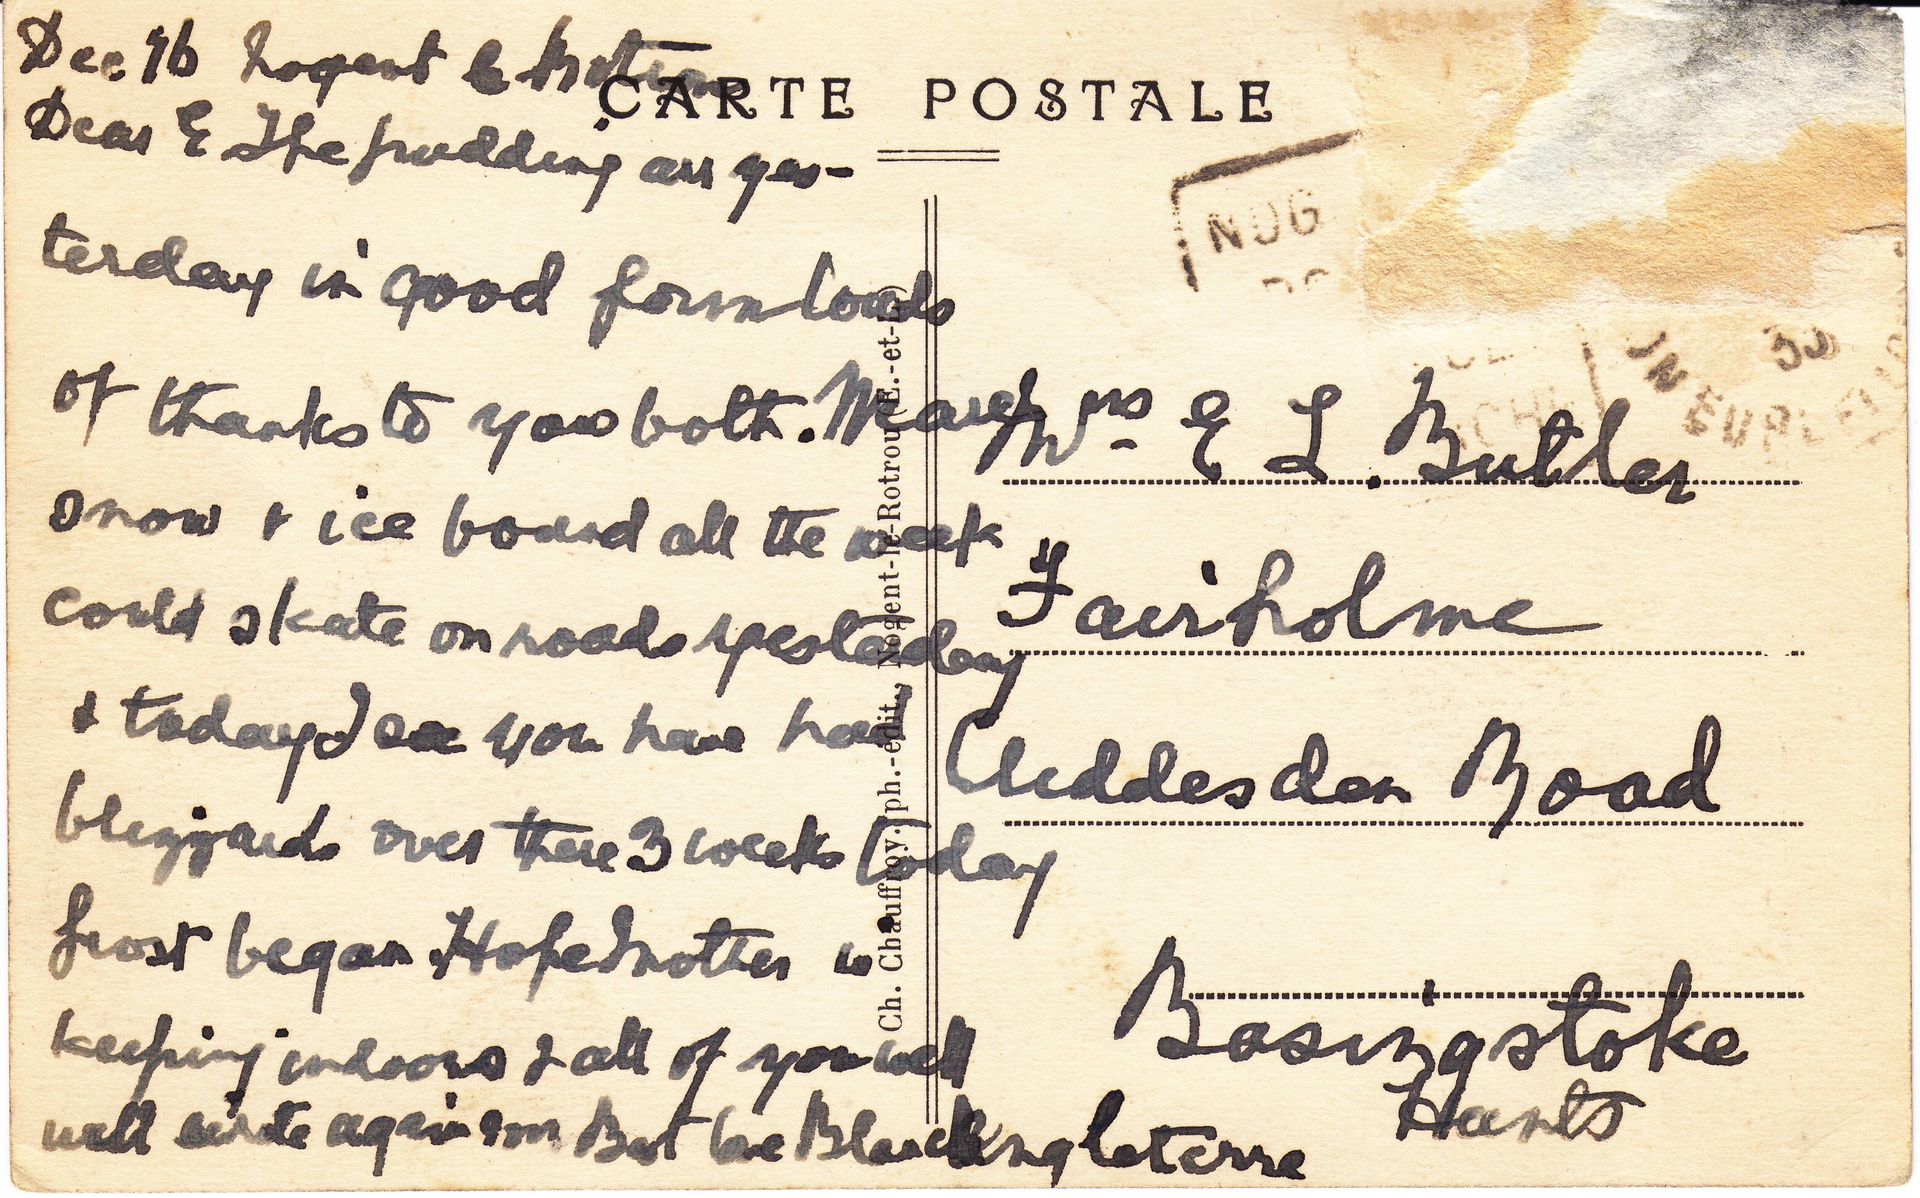 Dec 16 Nogent le Rotrou
CARTE POSTALE
Dear E The pudding arr yes-
terday in good form loads
of thanks to you both. Marck
snow & ice bound all the week
could skate on roads yesterday
& today I see you have had
blizzards over there 3 weeks today
frost began. Hope mother is
keeping indoors & all of you well
will write again soon Best love Blanch
Ch. Chauffroy, ph.-édit., Nogent-le-Rotrou (E.-et-L)
NOG
Mrs E L. Butler
Fairholme
Cliddesden Road
Basingstoke
Hants
Angleterre